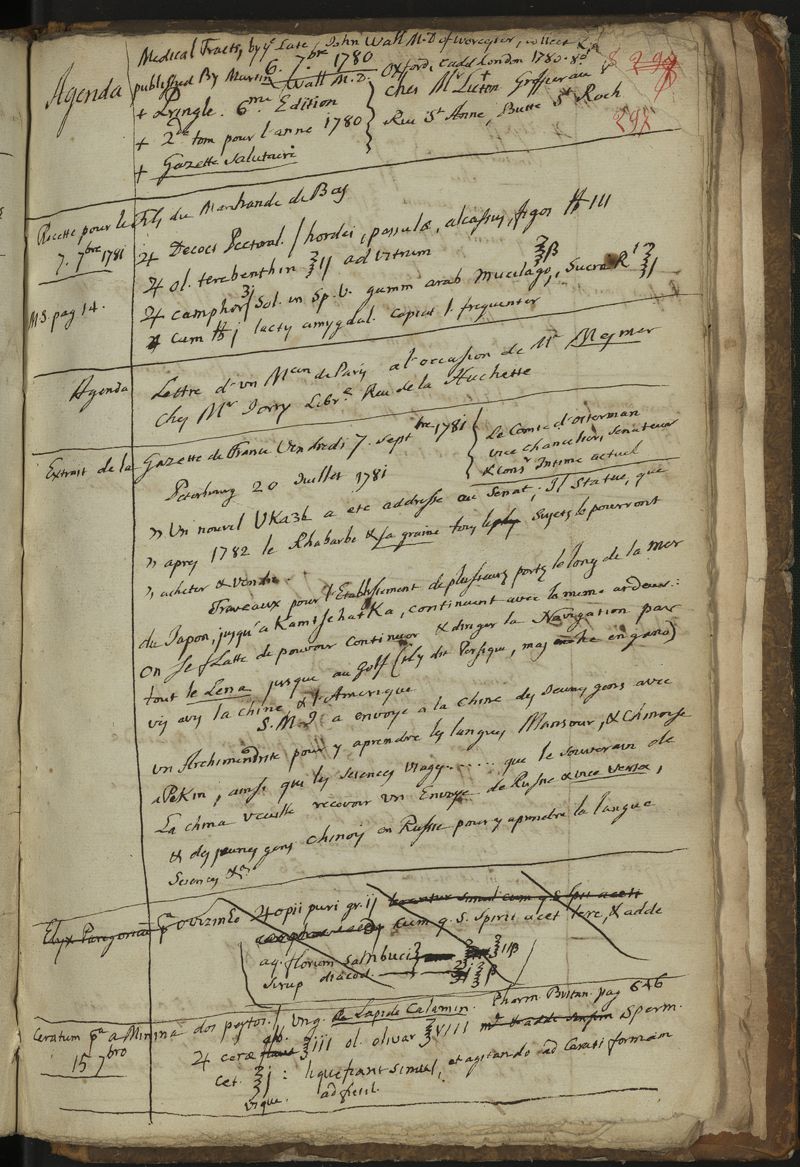 Medical Tracts, by ye Late John Wall M.D of worcester, collect &
6. 7bre 1780
Agenda published By Martin Wall M.D. Oxford, Cadd London 1780. 8o
+ Pringle. 6me Edition
ches Mr Luton
+ 2de tom pour l'anne 1780
Rue St Anne, Butte St Roch
+ Gazette Salutaire
297
Recette pour le Fils du Marchande de Bas
7. 7bre 1781
♃ Decoct Pectoral. / hordei, passulæ, ficos ℔ III
♃ ol. terebenthin ℥ij ad vitrum
MS. pag 14.
♃ camphor ʒj Sol. in Sp. V. gumm arab Mucilago, ℥β Sucre Rt ℥j
cum ℔ j lactis amygdal. capiat l. frequenter
Agenda Lettre d'un Mecin de Paris a l'occasion de Mr Mesmer
ches Mr Jorry Libre Rue de la Huchette
Extrait de la Gazette de France Vendredi 7. Septbre 1781
Petersbourg 20 Juillet 1781
Le Comte d'osterman
vice chancelier, Senateur
& Consr Intime actuel
" Un nouvel UKaze a ete addresse au Senat; Il Statue, que
" apres 1782 le Rhabarbe & sa graine tous les Sujets le pourront
" acheter & vendre.
Travaux pour l'Etablissement de plusieurs ports le long de la Mer
du Japon, jusqu'a KamtschatKa, continuent avec la meme ardeur:
On se flatte de pouvoir continuer & diriger la Navigation par
tout le Lena jusque au Golf (ils dit Persique, mais en gano)
vis avis la chine & l'Amerique
S.M.I a envoye a la Chine des Jeunes gens avec
un Archimandrite pour y aprendre les langues Mansour, & Chinoise
a PeKin, ainsi que les sciences usage...... que le souverain de
La china veuille recevoir un Envoye de Russie & vice versa,
& des jeunes gens chinois en Russie pour y aprendre la langue
Sciences &a
Elyx Paregoricum ♃ opii puri gr. ij
cum q. S. Spirit acet terc, & adde
aq. florum Sambuci ℥iiβ
Sirup diacod ℥β
Ceratum pa a Minima dos pestos. / Ung. de Lapide Calamin. Pharm. Britan. pag 646
15 7bro
♃ ceræ alb. ℥iii ol. olivar ℥VIII Sperm.
cet. ℥j: liquefiant simul, et agitando ad Cerati formam
usque.